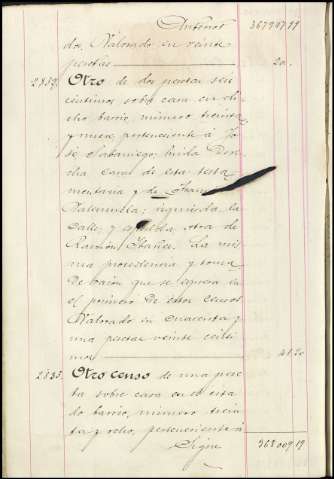 Anterior 367947,99
do, Valorado en veinte
pesetas 20,
Otro de dos pesetas seis
centimos sobre casa en di
cho barrio, número treinta
y nueve perteneciente á Jo
sé Sabaniego; linda Dere
cha Casa de esta testa
mentaria y de
izquierda la
Calle; y espalda otra de
Ramon Ibañez. La mis
ma procedencia y toma
de razon que se espresa en
el primero de estos Censos
Valorado en Cuarenta y
una pesetas veinte centi
mos 41,20
Otro censo de una pese
ta sobre casa en el cita
do barrio, número trein
ta y ocho, perteneciente á
Sigue 368009,19